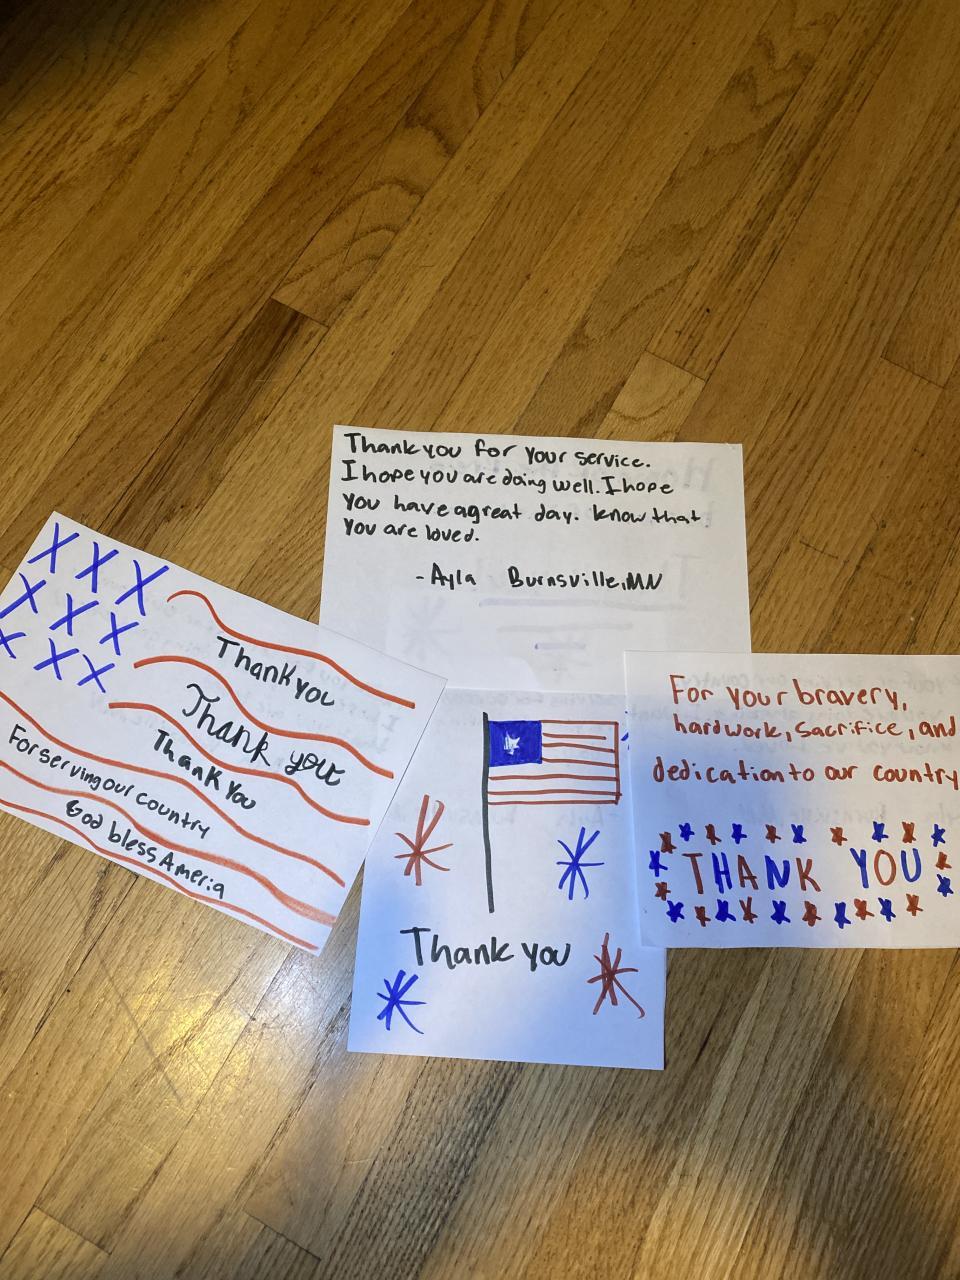 Thank you for your service.
I hope you are doing well. I hope
you have a great day. know that
you are loved.
- Ayla Burnsville, MN
Thank you
Thank you
Thank you
For serving our country
God bless Ameria
Thank you
For your bravery,
hard work, sacrifice, and
dedication to our country
THANK YOU